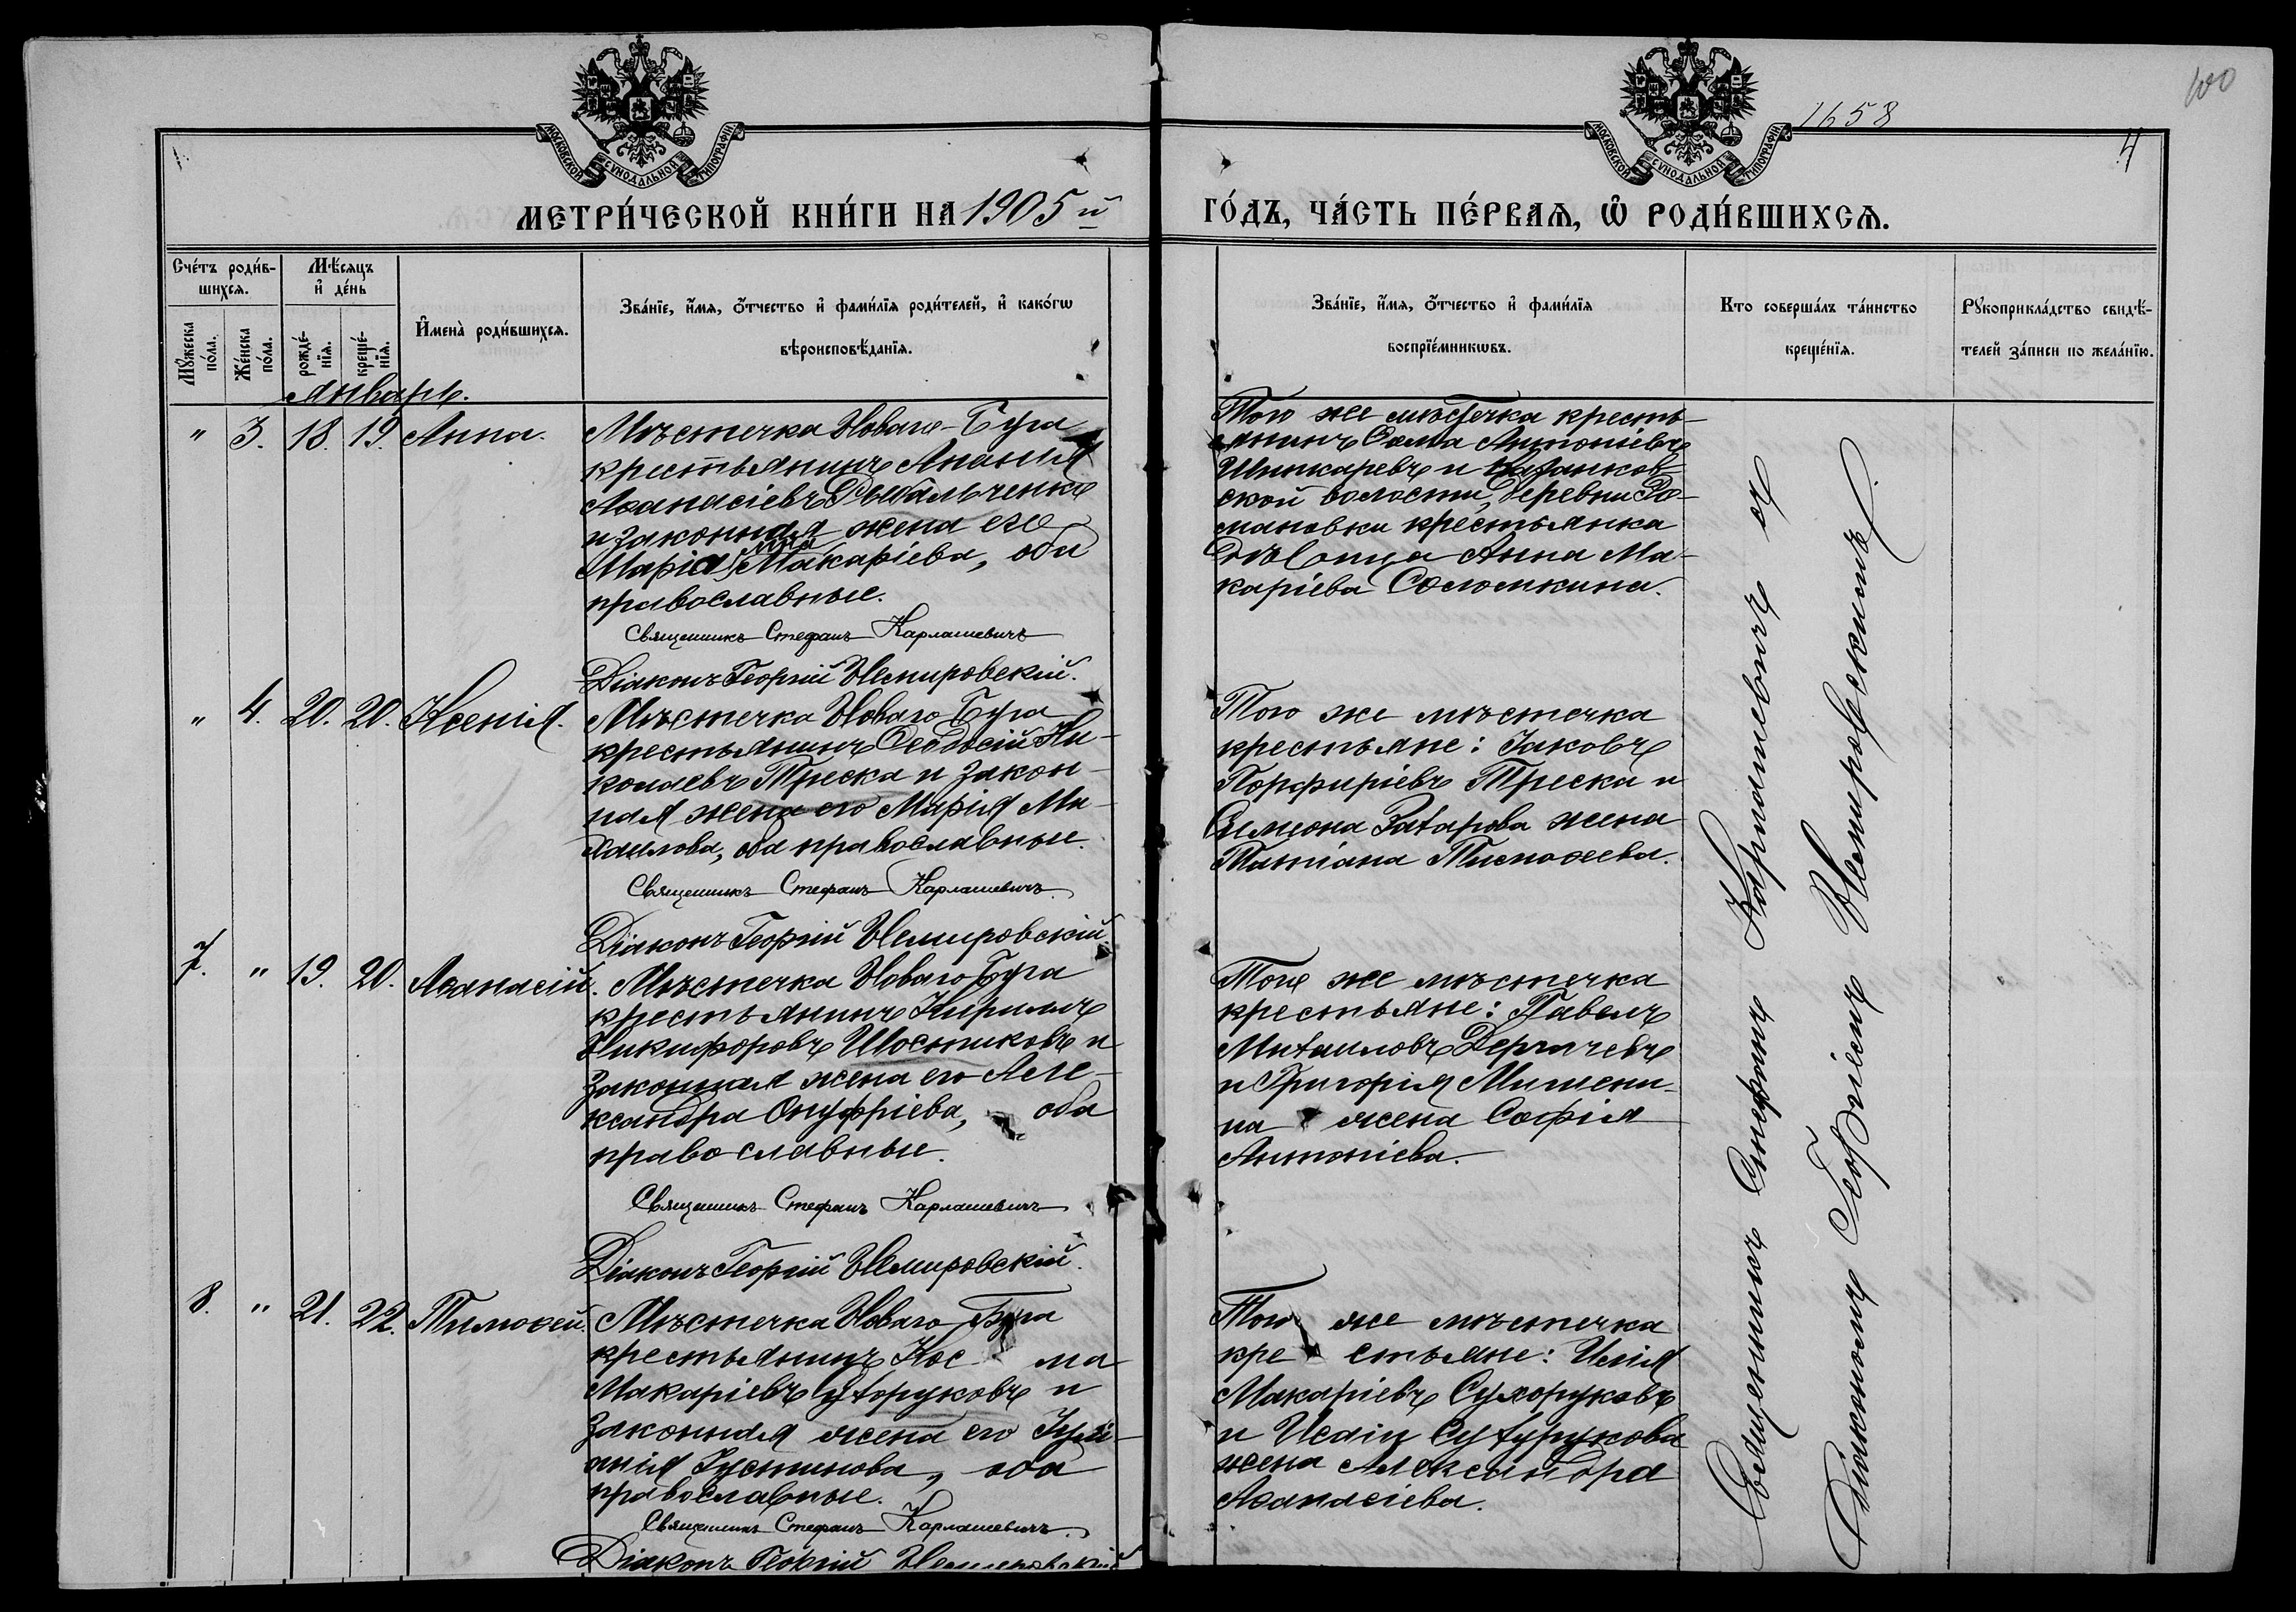 100
1658
4
МОСКОВСКОЙ СУНОДАЛЬНОЙ ТИПОГРАФІИ
МОСКОВСКОЙ СУНОДАЛЬНОЙ ТИПОГРАФІИ
МЕТРИ́ЧЕСКОЙ КНИ́ГИ НА 1905 й
ГО́ДЪ, ЧА́СТЬ ПЕ́РВАѦ, Ѡ҆ РОДИ́ВШИХСѦ.
Сче́тъ роди́в-
шихсѧ.
Мꙋжеска по́ла.
Же́нска по́ла.
Мѣ́сѧцъ
и҆ де́нь
рожде́-
нїѧ.
креще́-
нїѧ.
И҆мена̀ роди́вшихсѧ.
Зва́нїе, и҆́мѧ, ѻ҆́тчество и҆ фами́лїѧ роди́телей, и҆ како́гѡ
вѣроисповѣ́данїѧ.
Зва́нїе, и҆́мѧ, ѻ҆́тчество и҆ фами́лїѧ
воспрїе́мникѡвъ.
Кто соверша́лъ та́инство
креще́нїѧ.
Рꙋкоприкла́дство свидѣ́-
телей за́писи по жела́нїю.
Январь.
" 3. 18. 19. Анна.
Мѣстечка Новаго-Буга
крестьянинъ Ананія
Аѳанасіевъ Рыбальченко
и законная жена его
Марія Макаріева, оба
православные.
Священникъ Стефанъ Карлашевичъ
Діаконъ Георгій Немировскій.
Того же мѣстечка кресть-
янинъ Ѳома Антоніевъ
Шинкаревъ и Казанков-
ской волости, деревни Ро-
мановки крестьянка
дѣвица Анна Ма-
каріева Соломкина.
" 4. 20. 20. Ксенія.
Мѣстечка Новаго Буга
крестьянинъ Ѳеодосій Ни-
колаевъ Треска и закон-
ная жена его Марія Ми-
хаилова, оба православные.
Священникъ Стефанъ Карлашевичъ.
Діаконъ Георгій Немировскій
Того же мѣстечка
крестьяне: Іаковъ
Порфиріевъ Треска и
Симеона Захарова жена
Татіана Тимоѳеева.
7. " 19. 20. Аѳанасій.
Мѣстечка Новаго Буга
крестьянинъ Кириллъ
Никифоровъ Шостиковъ и
законная жена его Але-
ксандра Онуфріева, оба
православные.
Священникъ Стефанъ Карлашевичъ
Діаконъ Георгій Немировскій.
Того же мѣстечка
крестьяне: Павелъ
Михаиловъ Дергачевъ
и Григорія Мишени-
на жена Софія
Антоніева.
8. " 21. 22. Тимоѳей.
Мѣстечка Новаго Буга
крестьянинъ Косма
Макаріевъ Сухоруковъ и
законная жена его Іулі-
анія Іустинова, оба
православные.
Священникъ Стефанъ Карлашевичъ.
Діаконъ Георгій Немировскій
Того же мѣстечка
крестьяне: Илія
Макаріевъ Сухоруковъ
и Исаіи Сухурукова
жена Александра
Аѳанасіева.
Священникъ Стефанъ Карлашевичъ съ
Діакономъ Георгіемъ Немировскимъ.